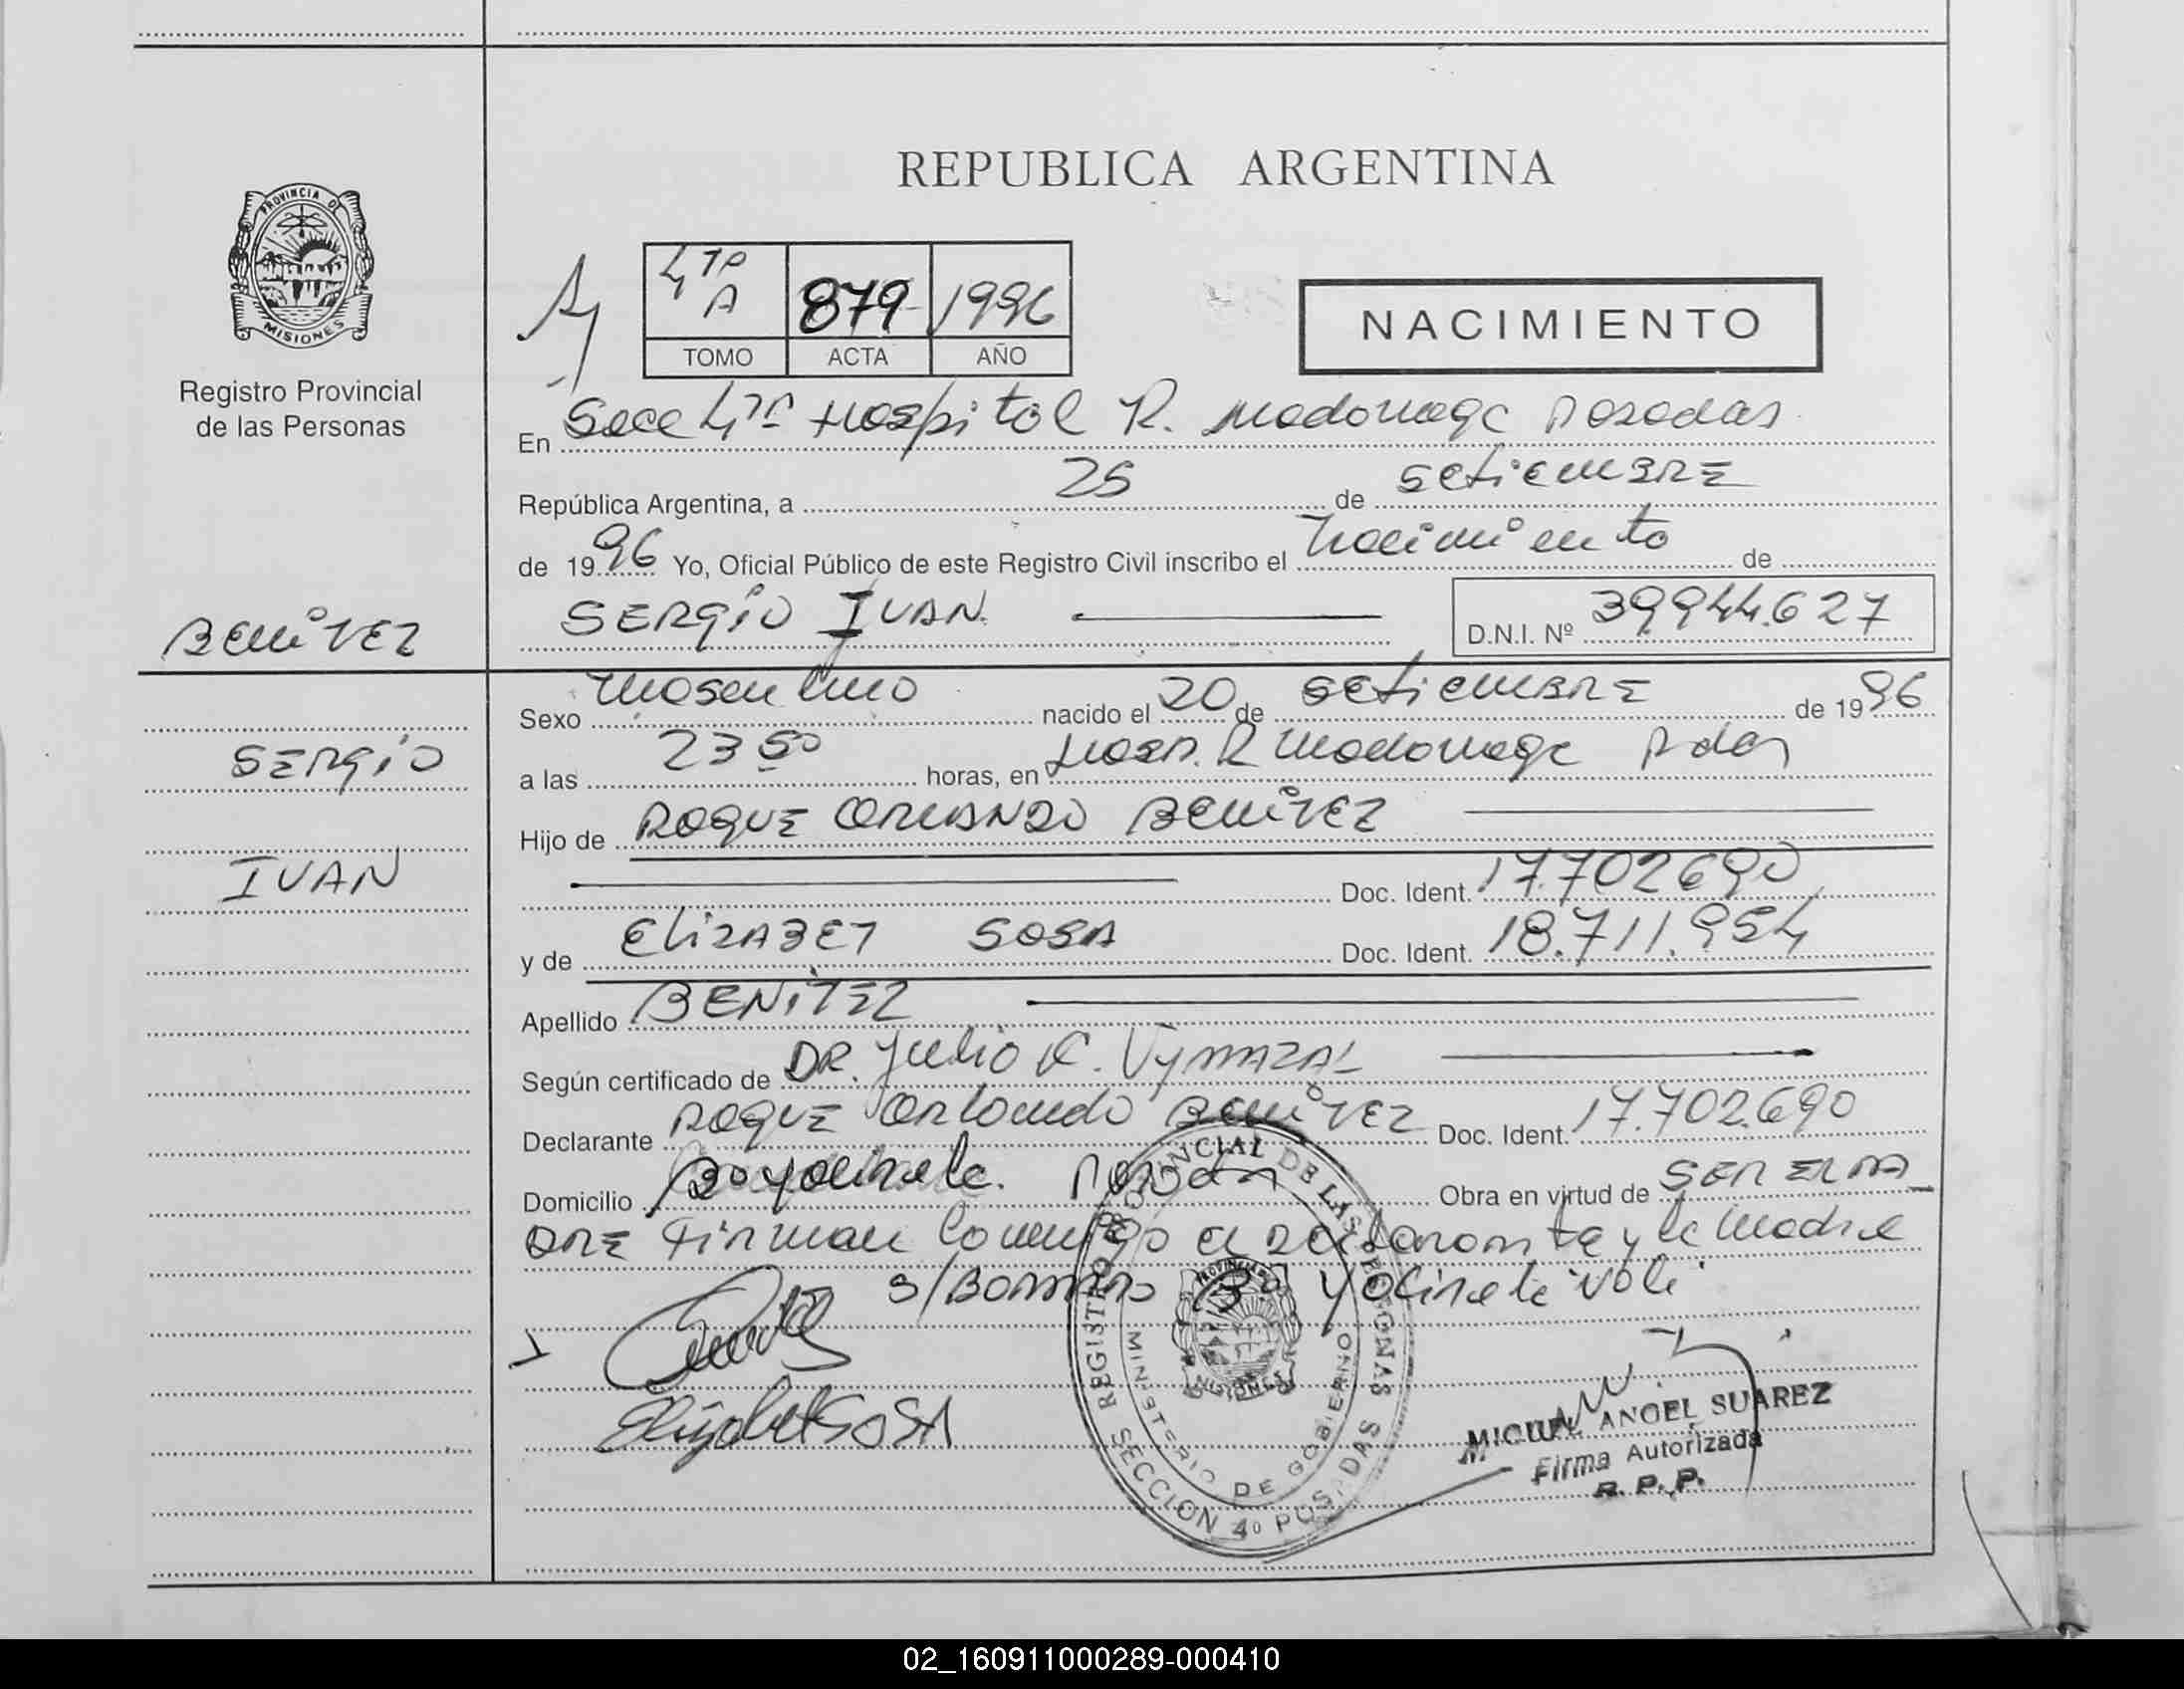 REPUBLICA ARGENTINA
PROVINCIA DE MISIONES
Registro Provincial
de las Personas
4ta A 879 1996
TOMO ACTA AÑO
NACIMIENTO
En Secc 4ta Hospital R. Madariaga Posadas
República Argentina, a 25 de setiembre
de 1996 Yo, Oficial Público de este Registro Civil inscribo el nacimiento de
SERGIO IVAN. D.N.I. Nº 39944.627
BENITEZ
SERGIO
IVAN
Sexo masculino nacido el 20 de setiembre de 1996
a las 23 50 horas, en Hosp. R Madariaga Pdas
Hijo de ROQUE ORLANDO BENITEZ
Doc. Ident. 17.702690
y de ELIZABET SOSA Doc. Ident. 18.711.954
Apellido BENITEZ
Según certificado de DR. Julio C. Vymazal
Declarante ROQUE Orlando BENITEZ Doc. Ident. 17.702.690
Domicilio Bº Yacireta. Posadas Obra en virtud de SER EL PA_
DRE Firman conmigo el declarante y la madre
s/Borrado Bº Yacireta vale
Elizabet SOSA
REGISTRO PROVINCIAL DE LAS PERSONAS
MINISTERIO DE GOBIERNO
PROVINCIA DE MISIONES
SECCION 4º POSADAS
MIGUEL ANGEL SUAREZ
Firma Autorizada
R. P. P.
02_160911000289-000410